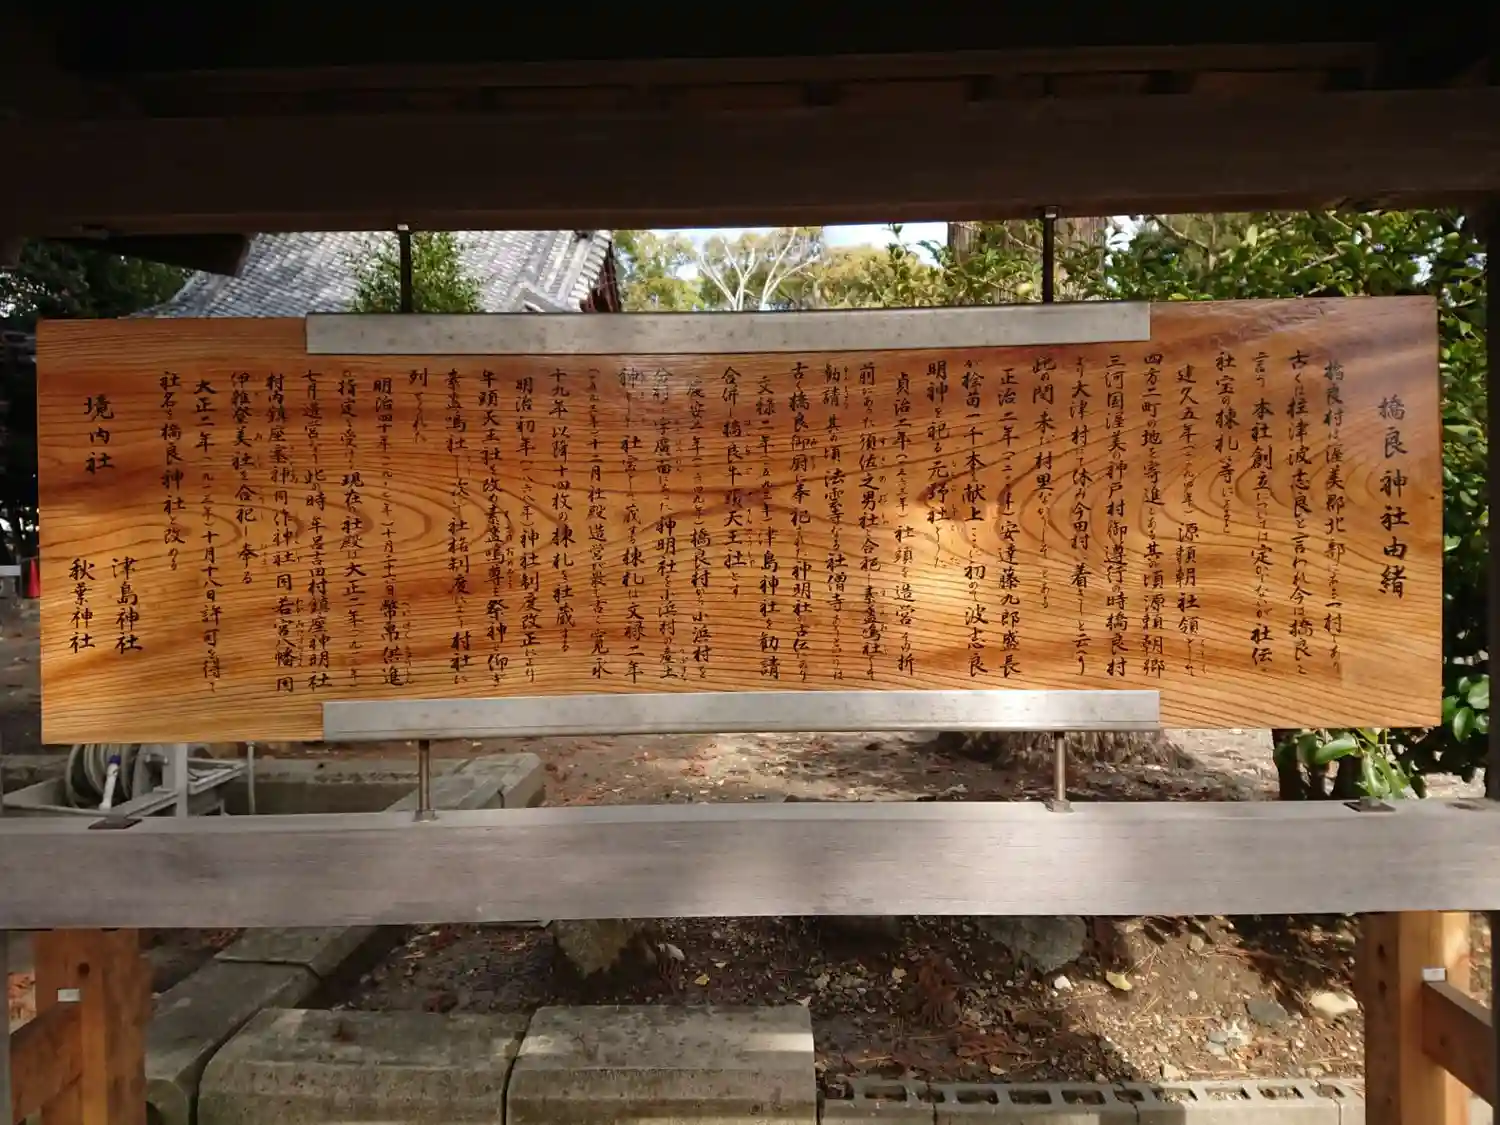 橋良神社由緒
橋良村は渥美郡北部にある一村であり
古くは柱津波志良と言われ今は橋良と
言う 本社創立については定かでないが社伝と
社宝の棟札等によると
建久五年(一一九四年)源頼朝社領として
四方二町の地を寄進とある其の頃源頼朝卿
三河国渥美の神戸村御遵行の時橋良村
より大津村にて休み今田村へ着きしと云う
此の間未だ村里なかりしなりとある
正治二年(一二〇〇年)安達藤九郎盛長
が松苗一千本を献上ここに初めて波志良
明神を祀る元野社とした
貞治二年(一三六三年)社頭を造営その折
前にあった須佐之男社を合祀し素盞嗚社として
勧請 其の頃法霊寺なる社僧寺あり
古く橋良御厨に奉祀された神明社も古伝にあり
文禄二年(一五九三年)津島神社を勧請
合併し橋良牛頭天王社とす
慶安二年(一六四九年)橋良村から小浜村を
分村し字廣面にあった神明社を小浜村の産土
神とした 社宝として蔵する棟札は文禄二年
(一五九三年)十二月社殿造営が最も古く寛永
十九年以降十四枚の棟札を社蔵する
明治初年(一八六八年)神社制度改正により
牛頭天王社を改め素盞嗚尊を祭神と仰ぎ
素盞嗚社とし次いで社格制度により村社に
列せられた
明治四十年(一九〇七年)十月二十六日幣帛供進
の指定を受け 現在の社殿は大正二年(一九一三年)
七月造営なり 此の時牟呂吉田村鎮座神明社
村内鎮座峯神 同作神社 同若宮八幡 同
伊雜登美社を合祀し奉る
大正二年(一九一三年)十月十八日許可を得て
社名を橋良神社と改める
境内社
津島神社
秋葉神社